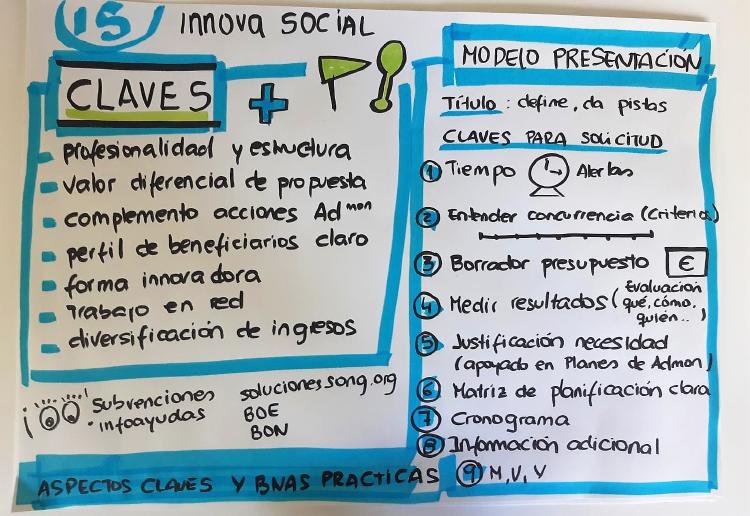 15 innova SOCIAL
CLAVES +
profesionalidad y estructura
valor diferencial de propuesta
complemento acciones Admon
perfil de beneficiarios claro
forma innovadora
Trabajo en red
diversificación de ingresos
Subvenciones
infoayudas
solucionessong.org
BOE
BON
ASPECTOS CLAVES Y BNAS PRACTICAS
MODELO PRESENTACIÓN
Título: define, da pistas
CLAVES PARA SOLICITUD
1 Tiempo Alertas
2 Entender concurrencia (Criterios)
3 Borrador presupuesto €
4 Medir resultados (Evaluación
qué, cómo,
quién..)
5 Justificación necesidad
(apoyado en Planes de Admon)
6 Matriz de planificación clara
7 Cronograma
8 Información adicional
9 M, V, V